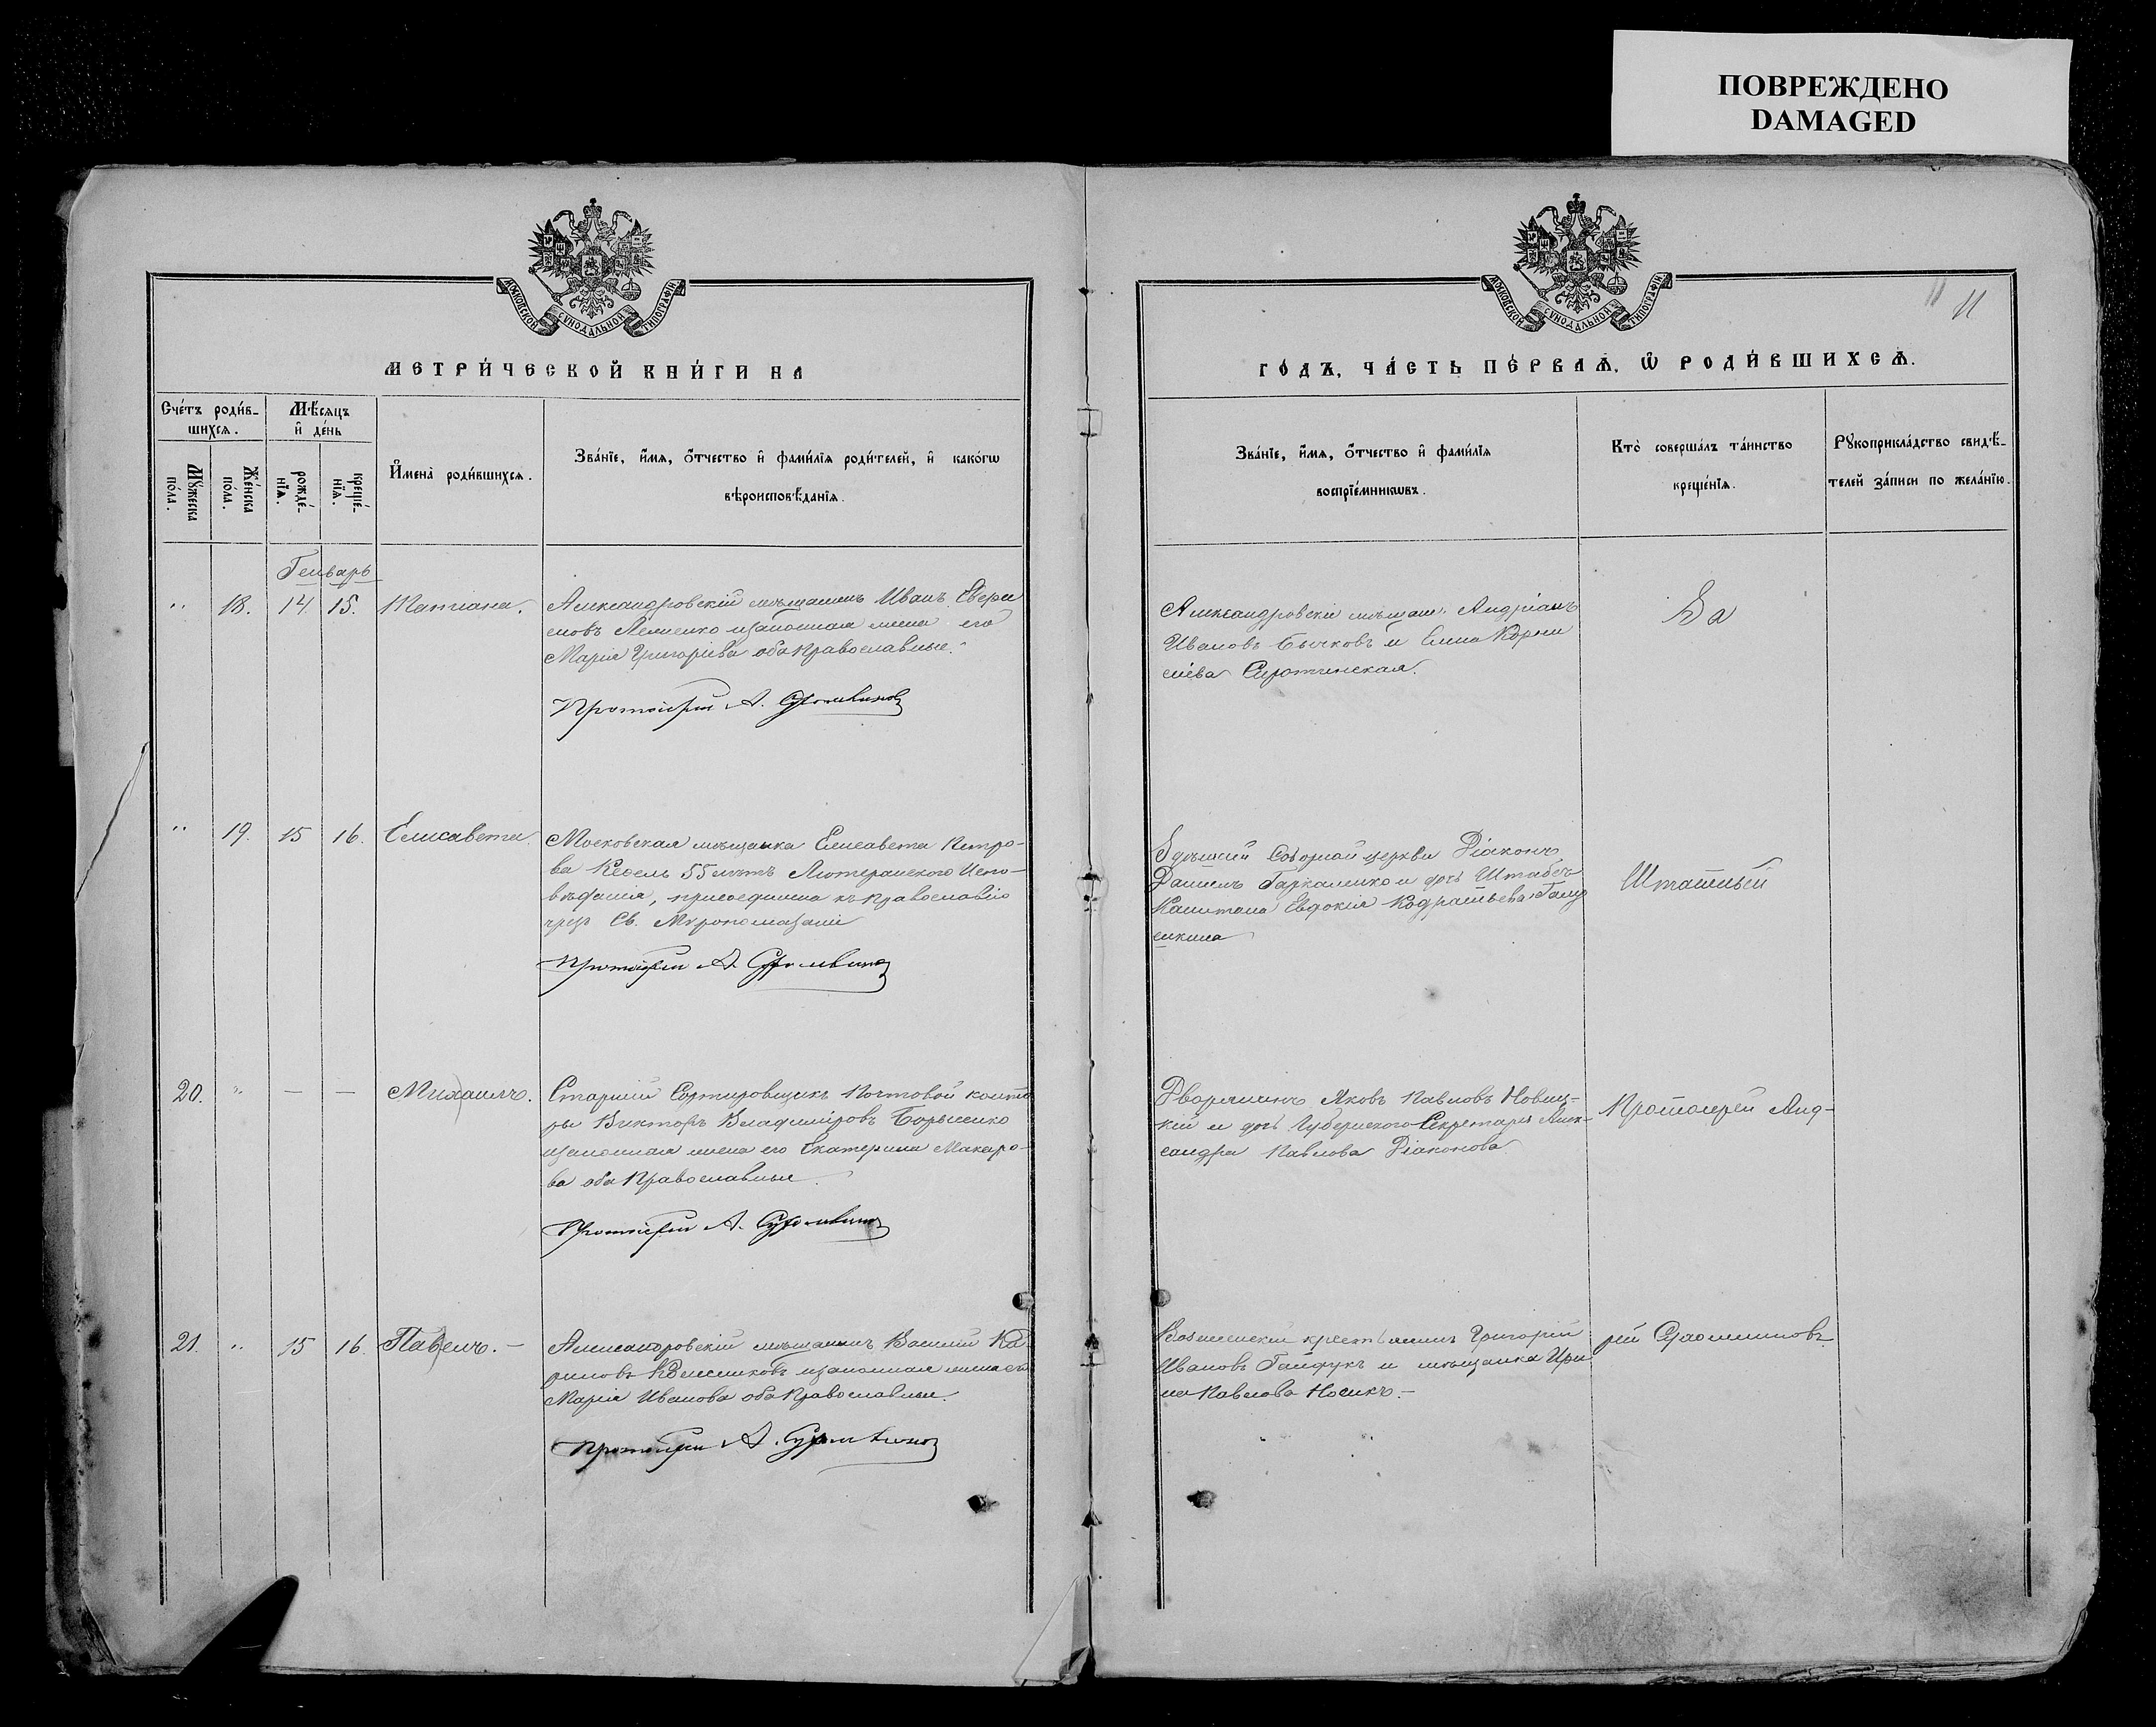 ПОВРЕЖДЕНО
DAMAGED
МОСКОВСКОЙ СѴНОДАЛЬНОЙ ТИПОГРАФІИ
МЕТРИ́ЧЕСКОЙ КНИ́ГИ НА
Сче́тъ роди́в-
шихсѧ.
Мѣ́сяцъ
и҆ де́нь
Мꙋ́жеска
по́ла.
Же́нска
по́ла.
рожде́-
нїѧ.
креще́-
нїѧ.
И҆мена̀ роди́вшихсѧ.
Зва́нїе, и҆́мѧ, ѻ҆́тчество и҆ фами́лїѧ роди́телей, и҆ како́гѡ
вѣроисповѣ́данїѧ.
Генварь
" 18. 14. 15. Татіана.
Александровскій мѣщанинъ Иванъ
новъ законная жена его
Марія Григоріева оба Православные.
Протоіерей А.
" 19. 15 16. Елисавета.
Московская мѣщанка Елисавета Петро-
ва 55 лѣтъ Лютеранскаго Испо-
вѣданія, присоединена къ Православію
чрезъ Св. Мѵропомазаніе
Протоіерей А.
20. " — — Михаилъ.
Старшій Сортировщикъ Почтовой конто
ры Викторъ Владиміровъ Борысенко
законная жена его Екатерина Макаро-
ва оба Православные.
Протоіерей А.
21. " 15 16. Павелъ. —
Александровскій мѣщанинъ Василій
законная жена его
Марія Иванова оба Православные.
Протоіерей А.
МОСКОВСКОЙ СѴНОДАЛЬНОЙ ТИПОГРАФІИ
11 11
ГО́ДЪ, ЧА́СТЬ ПЕ́РВАѦ, Ѡ҆ РОДИ́ВШИХСѦ.
Зва́нїе, и҆́мѧ, ѻ҆́тчество и҆ фами́лїѧ
воспрїе́мникѡвъ.
Кто̀ соверша́лъ та́инство
креще́нїѧ.
Рꙋкоприкла́дство свидѣ́-
телей за́писи по жела́нїю.
Александровскіе мѣщане, Андріанъ
Ивановъ Бычковъ и Корни
ліева Сиротинская.
За
Здѣшней Соборной церкви Діаконъ
Даніилъ Гаркаленко и дочь Штабсъ
Капитана Евдокія Кодратьева
Штатный
Дворянинъ Яковъ Павловъ Новиц-
кій и дочь Губернскаго Секретаря Алек-
сандра Павлова Діаконова.
Протоіерей Анд-
крестьянинъ Григорій
Ивановъ Гайдукъ и мѣщанка Ири
на Павлова Носикъ. —
рей